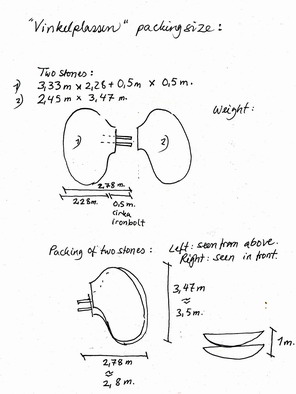 "Vinkelplassen" packingsize:
Two stones:
1) 3,33m x 2,28 + 0,5m x 0,5m.
2) 2,45m x 3,47m.
Weight:
1)
2)
2,78m.
2,28m.
0,5m.
cirka
ironbolt
Packing of two stones:
Left: seen from above.
Right: seen in front.
3,47m
≈
3,5m.
1m.
2,78m
≈
2,8m.